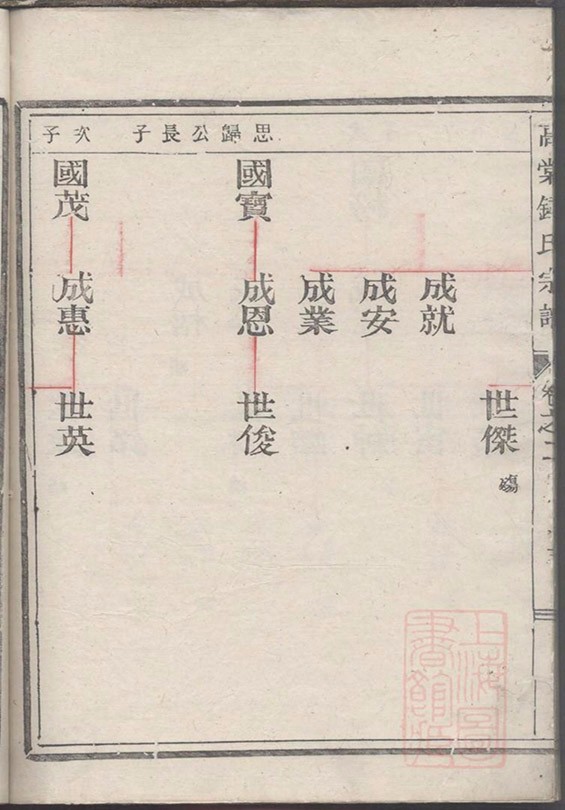 高棠鍾氏宗譜 卷之二
思歸公長子
次子
世傑
殤
成就
成安
成業
國寶
成恩
世俊
國茂
成惠
世英
上海圖
書館藏